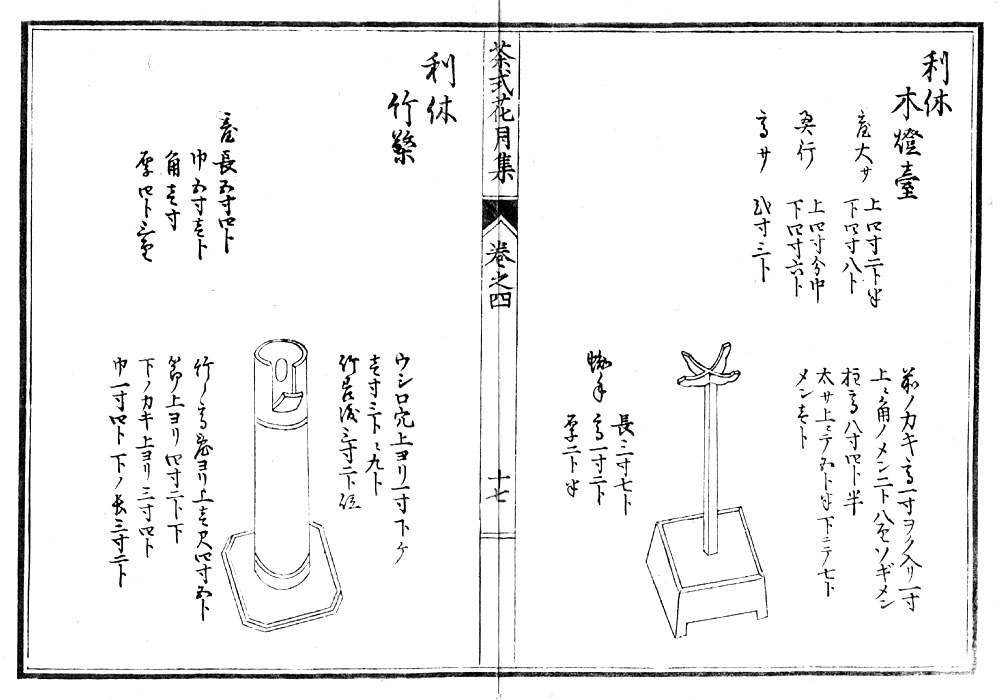 利休
木燈臺
臺大サ 上四寸二卜半
下四寸八卜
奥行 上四寸分巾
下四寸六卜
高サ 弐寸三卜
前ノカキ高一寸ヲク入リ一寸
上ミ角ノメン二卜八リンソギメン
柱高八寸四卜半
太サ上ニテ五卜半下ニテ七卜
メン壱卜
蜘手 長三寸七卜
高一寸二卜
厚二卜半
茶式花月集
卷之四
十七
利休
竹檠
臺長五寸四卜
巾五寸壱卜
角壱寸
厚四卜三リン
ウシロ穴上ヨリ一寸下ケ
壱寸三卜ニ九卜
竹ノ高臺ヨリ上壱尺四寸五卜
節ノ上ヨリ四寸二卜下
下ノカキ上ヨリ三寸四卜
巾一寸四卜下ノ長三寸二卜